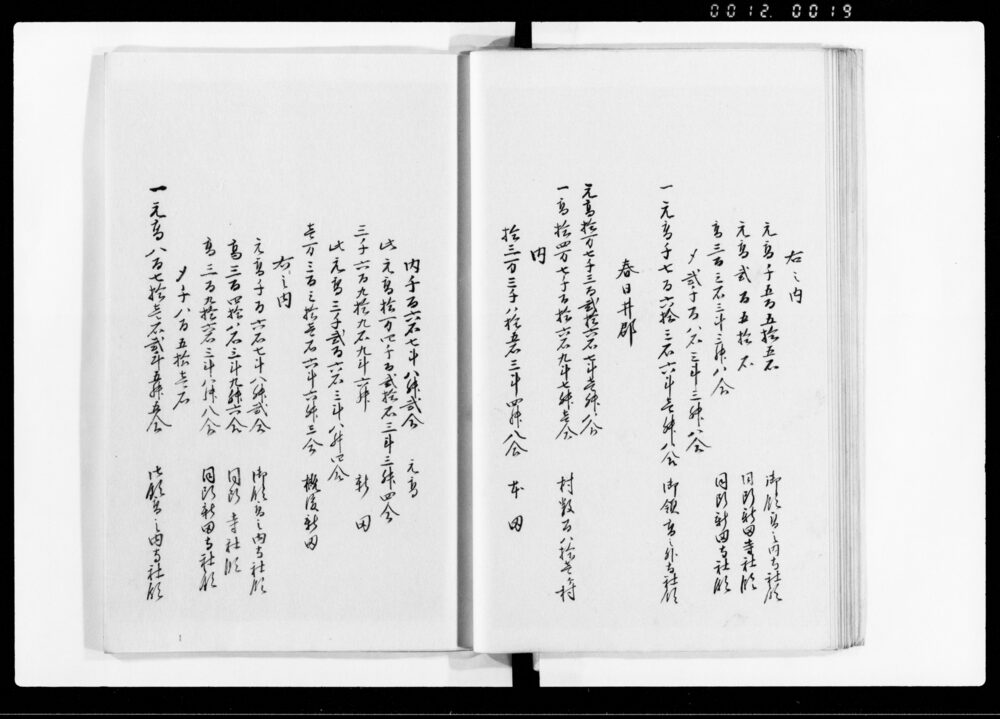 0012 0019
右之内
元高千五百五拾五石 御領高之内寺社領
元高弐百五拾石 同断新田寺社領
高三百三石三斗三升八合 同断新田寺社領
〆弐千百八石三斗三升八合
一元高千七百六拾三石六斗壱升八合 御領高外寺社領
春日井郡
元高拾一万七千三百弐拾六石七斗壱升八合
一高拾四万七千百拾六石九斗七升壱合 村数百八拾壱村
内
拾三万三千八拾五石三斗四升八合 本田
内千百六石七斗八升弐合 元高
此元高拾一万四千百弐拾石三斗三升四合
三千六百九拾九石九斗六升 新田
此元高三千弐百六石三斗八升四合
壱万三百三拾壱石六斗六升三合 概後新田
右之内
元高千百六石七斗八升弐合 御領高之内寺社領
高三百四拾八石三斗九升六合 同断寺社領
高三百九拾六石三斗八升八合 同断新田寺社領
〆千八百五拾壱石
一元高八百七拾壱石弐斗五升五合 御領高之内寺社領